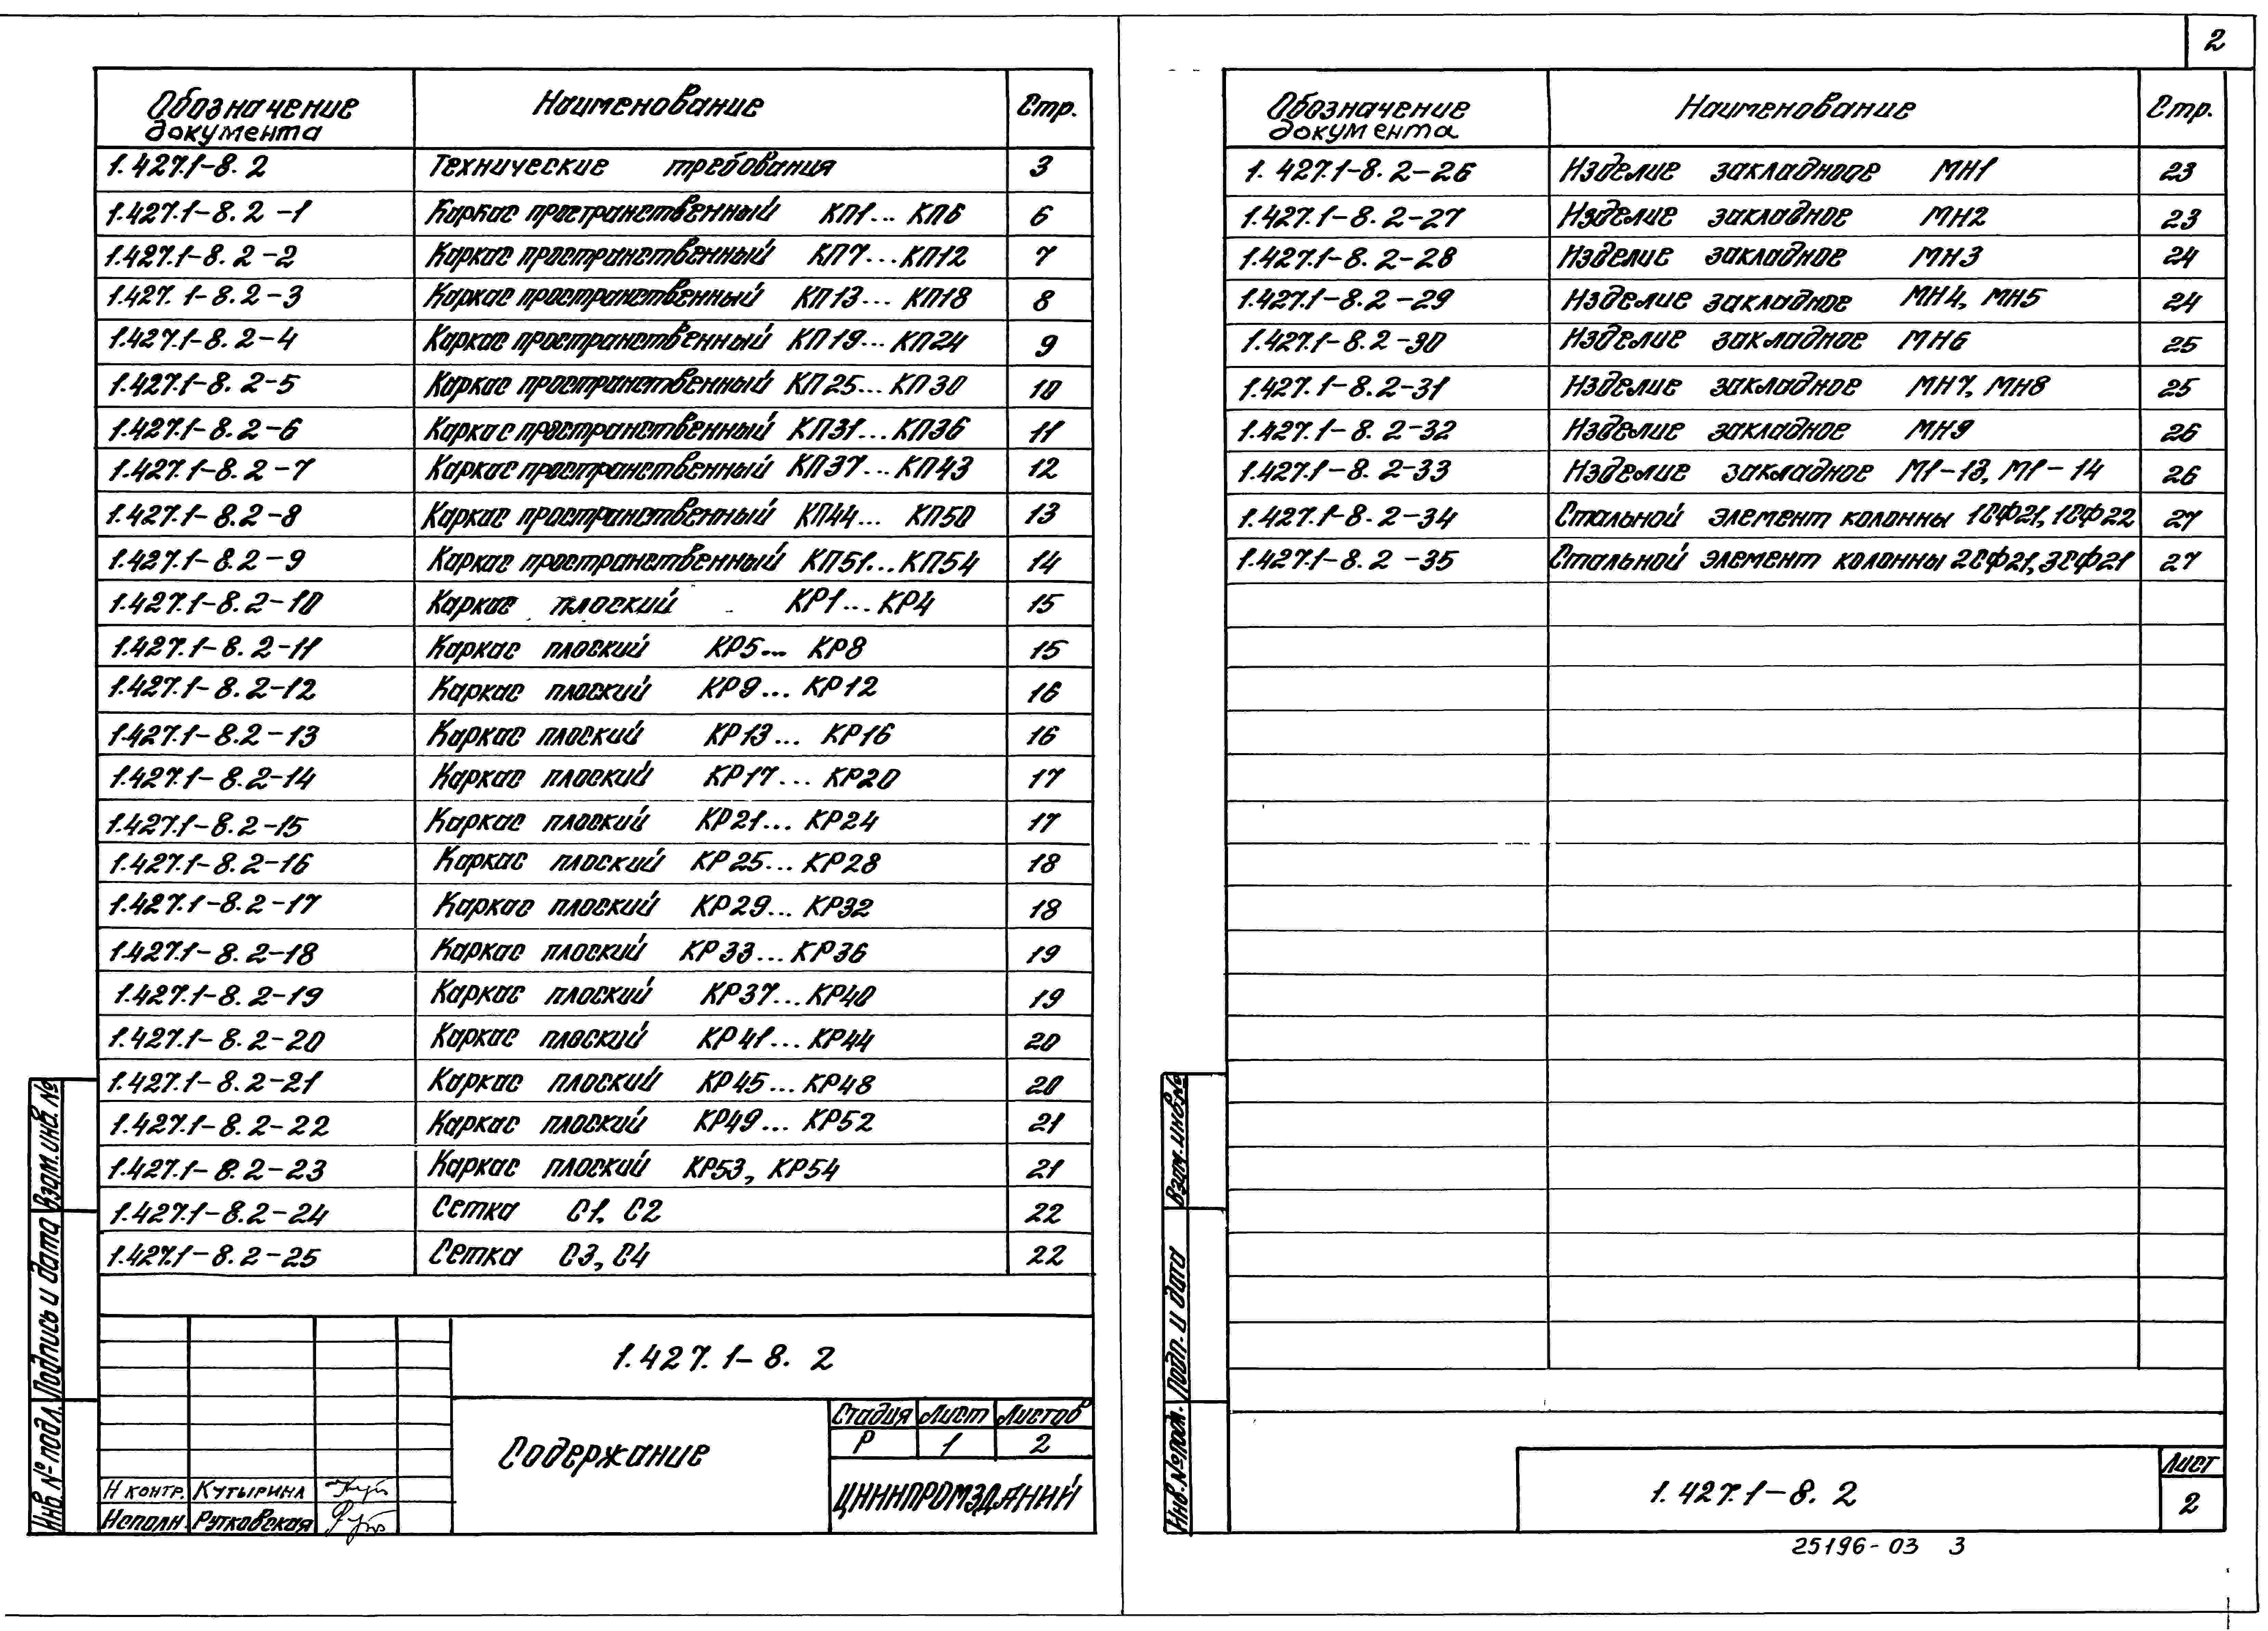 2
Обозначение документа Наименование Стр.
1.427.1-8.2 Технические требования 3
1.427.1-8.2-1 Каркас пространственный КП1...КП6 6
1.427.1-8.2-2 Каркас пространственный КП7...КП12 7
1.427.1-8.2-3 Каркас пространственный КП13...КП18 8
1.427.1-8.2-4 Каркас пространственный КП19...КП24 9
1.427.1-8.2-5 Каркас пространственный КП25...КП30 10
1.427.1-8.2-6 Каркас пространственный КП31...КП36 11
1.427.1-8.2-7 Каркас пространственный КП37...КП43 12
1.427.1-8.2-8 Каркас пространственный КП44...КП50 13
1.427.1-8.2-9 Каркас пространственный КП51...КП54 14
1.427.1-8.2-10 Каркас плоский КР1...КР4 15
1.427.1-8.2-11 Каркас плоский КР5...КР8 15
1.427.1-8.2-12 Каркас плоский КР9...КР12 16
1.427.1-8.2-13 Каркас плоский КР13...КР16 16
1.427.1-8.2-14 Каркас плоский КР17...КР20 17
1.427.1-8.2-15 Каркас плоский КР21...КР24 17
1.427.1-8.2-16 Каркас плоский КР25...КР28 18
1.427.1-8.2-17 Каркас плоский КР29...КР32 18
1.427.1-8.2-18 Каркас плоский КР33...КР36 19
1.427.1-8.2-19 Каркас плоский КР37...КР40 19
1.427.1-8.2-20 Каркас плоский КР41...КР44 20
1.427.1-8.2-21 Каркас плоский КР45...КР48 20
1.427.1-8.2-22 Каркас плоский КР49...КР52 21
1.427.1-8.2-23 Каркас плоский КР53, КР54 21
1.427.1-8.2-24 Сетка С1, С2 22
1.427.1-8.2-25 Сетка С3, С4 22
Взам. инв. №
Подпись и дата
Инв. № подл.
1.427.1-8.2
Содержание
Стадия Лист Листов
Р 1 2
ЦНИИПРОМЗДАНИЙ
Н контр. Кутырина
Исполн. Рутковская
Обозначение документа Наименование Стр.
1.427.1-8.2-26 Изделие закладное МН1 23
1.427.1-8.2-27 Изделие закладное МН2 23
1.427.1-8.2-28 Изделие закладное МН3 24
1.427.1-8.2-29 Изделие закладное МН4, МН5 24
1.427.1-8.2-30 Изделие закладное МН6 25
1.427.1-8.2-31 Изделие закладное МН7, МН8 25
1.427.1-8.2-32 Изделие закладное МН9 26
1.427.1-8.2-33 Изделие закладное М1-13, М1-14 26
1.427.1-8.2-34 Стальной элемент колонны 1СФ21, 1СФ22 27
1.427.1-8.2-35 Стальной элемент колонны 2СФ21, 3СФ21 27
Взам. инв. №
Подп. и дата
Инв. № подл.
1.427.1-8.2
Лист
2
25196-03 3